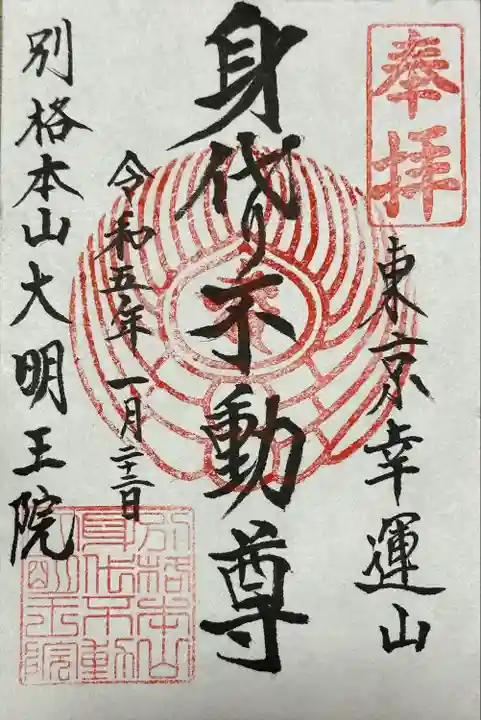 奉拝
東京幸運山
身代り不動尊
令和五年一月二十二日
別格本山大明王院